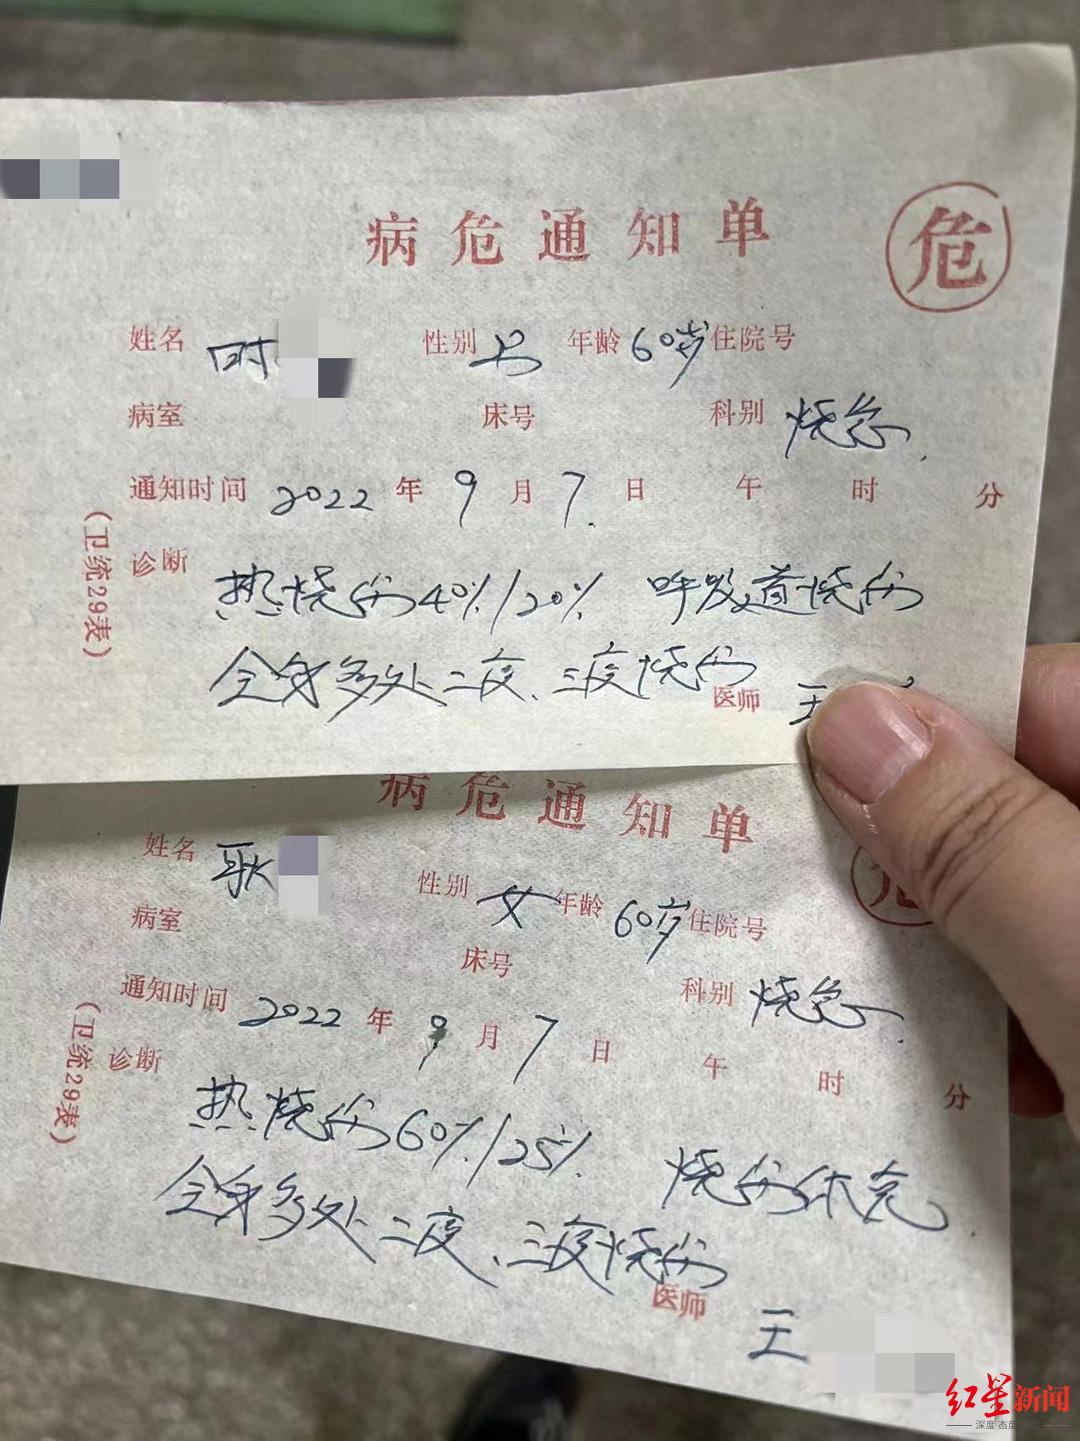 病危通知单 危
姓名 时 性别 男 年龄 60岁 住院号
病室 床号 科别 烧总
通知时间 2022 年 9 月 7 日 午 时 分
诊断 热烧伤40%/20% 呼吸道烧伤
全身多处二度、三度烧伤
医师 王
(卫统29表)
病危通知单 危
姓名 耿 性别 女 年龄 60岁 住院号
病室 床号 科别 烧总
通知时间 2022 年 9 月 7 日 午 时 分
诊断 热烧伤60%/25% 烧伤休克
全身多处二度、三度烧伤
医师 王
(卫统29表)
红星新闻
深度 态度